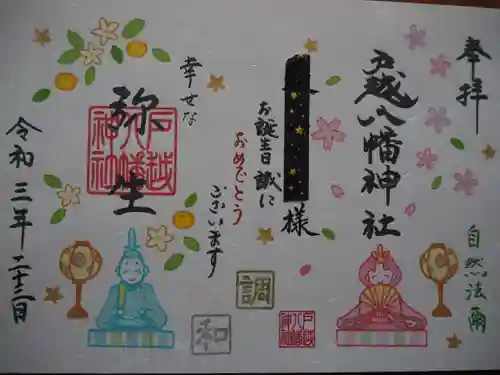 奉拝
自然法爾
戸越八幡神社
様
お誕生日誠に
おめでとう
ございます
様
幸せな
弥生
戸越八幡神社
令和三年三月二十三日
調
和
戸越八幡神社